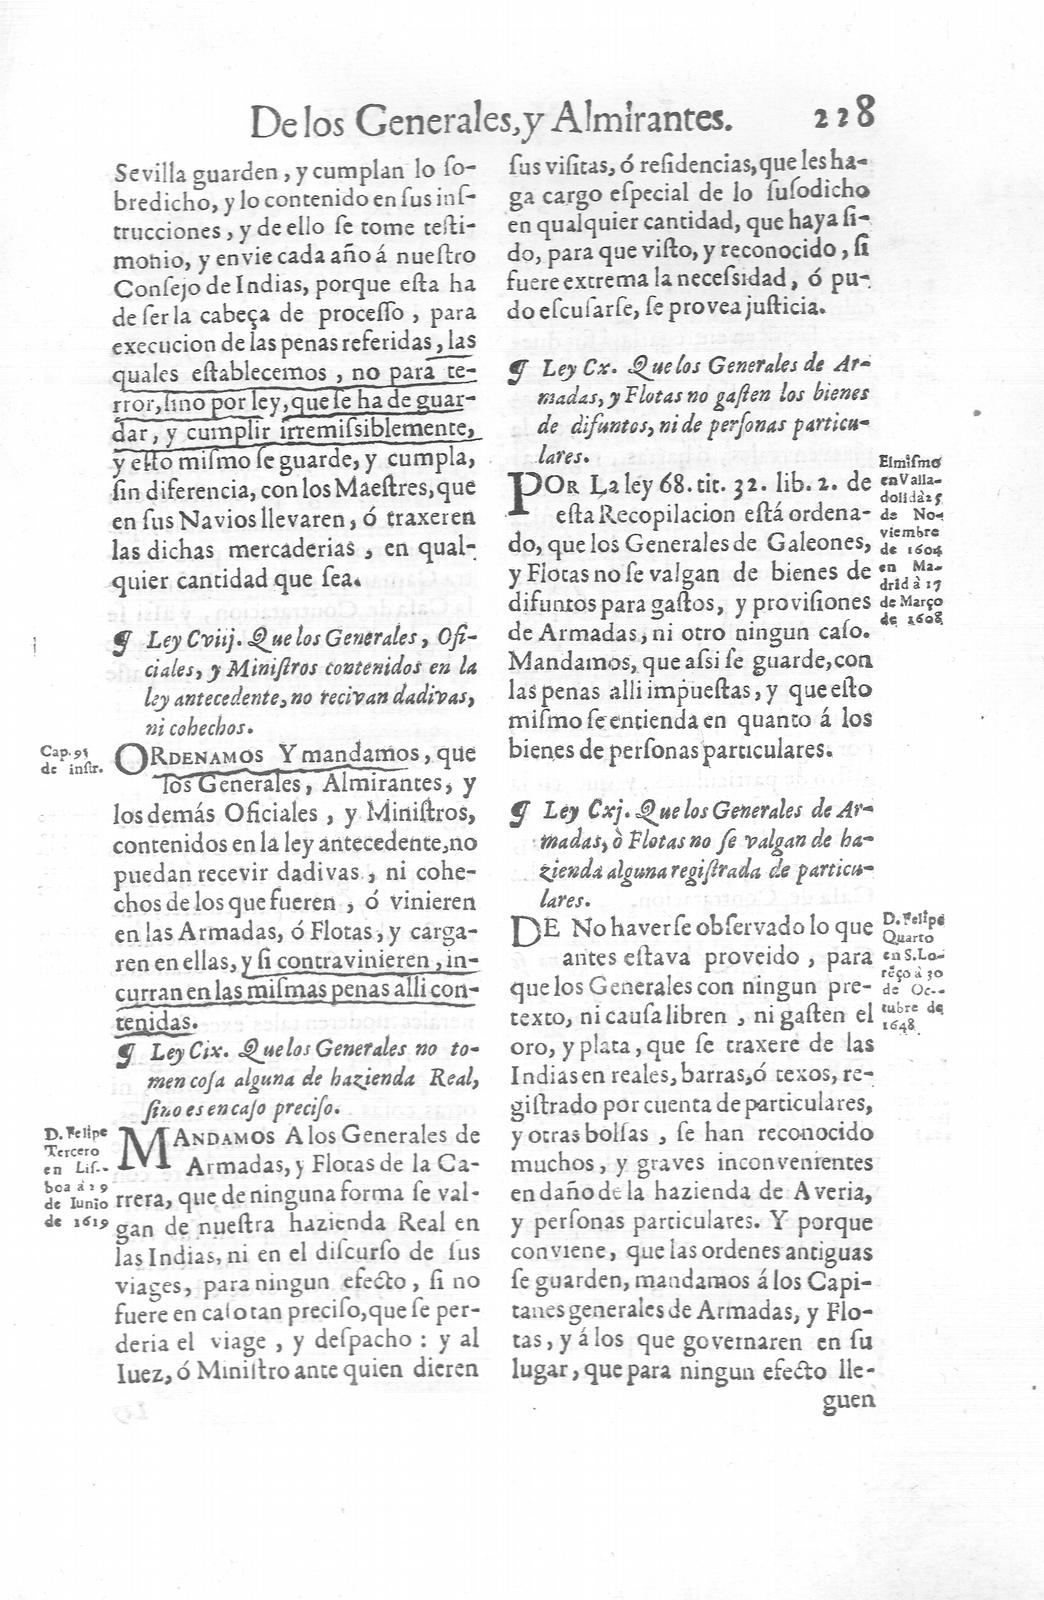 De los Generales, y Almirantes. 228
Sevilla guarden, y cumplan lo so-
bredicho, y lo contenido en sus ins-
trucciones, y de ello se tome testi-
monio, y envie cada año á nuestro
Consejo de Indias, porque esta ha
de ser la cabeça de processo, para
execucion de las penas referidas, las
quales establecemos, no para te-
rror, sino por ley, que se ha de guar-
dar, y cumplir irremissiblemente,
y esto mismo se guarde, y cumpla,
sin diferencia, con los Maestres, que
en sus Navios llevaren, ó traxeren
las dichas mercaderias, en qual-
quier cantidad que sea.
¶ Ley Cviij. Que los Generales, Ofi-
ciales, y Ministros contenidos en la
ley antecedente, no recivan dadivas,
ni cohechos.
Cap. 91
de instr.
ORDENAMOS Y mandamos, que
los Generales, Almirantes, y
los demás Oficiales, y Ministros,
contenidos en la ley antecedente, no
puedan recevir dadivas, ni cohe-
chos de los que fueren, ó vinieren
en las Armadas, ó Flotas, y carga-
ren en ellas, y si contravinieren, in-
curran en las mismas penas alli con-
tenidas.
¶ Ley Cix. Que los Generales no to-
men cosa alguna de hazienda Real,
sino es en caso preciso.
D. Felipe
Tercero
en Lis-
boa á 19
de Iunio
de 1619
MANDAMOS A los Generales de
Armadas, y Flotas de la Ca-
rrera, que de ninguna forma se val-
gan de nuestra hazienda Real en
las Indias, ni en el discurso de sus
viages, para ningun efecto, si no
fuere en caso tan preciso, que se per-
deria el viage, y despacho: y al
Iuez, ó Ministro ante quien dieren
sus visitas, ó residencias, que les ha-
ga cargo especial de lo susodicho
en qualquier cantidad, que haya si-
do, para que visto, y reconocido, si
fuere extrema la necessidad, ó pu-
do escusarse, se provea justicia.
¶ Ley Cx. Que los Generales de Ar-
madas, y Flotas no gasten los bienes
de difuntos, ni de personas particu-
lares.
El mismo
en Valla-
dolid à 25
de No-
viembre
de 1604
en Ma-
drid à 17
de Março
de 1608
POR La ley 68. tit. 32. lib. 2. de
esta Recopilacion está ordena-
do, que los Generales de Galeones,
y Flotas no se valgan de bienes de
difuntos para gastos, y provisiones
de Armadas, ni otro ningun caso.
Mandamos, que assi se guarde, con
las penas alli impuestas, y que esto
mismo se entienda en quanto á los
bienes de personas particulares.
¶ Ley Cxj. Que los Generales de Ar-
madas, ò Flotas no se valgan de ha-
zienda alguna registrada de particu-
lares.
D. Felipe
Quarto
en S. Lo-
reço à 30
de Oc-
tubre de
1648.
DE No haverse observado lo que
antes estava proveido, para
que los Generales con ningun pre-
texto, ni causa libren, ni gasten el
oro, y plata, que se traxere de las
Indias en reales, barras, ó texos, re-
gistrado por cuenta de particulares,
y otras bolsas, se han reconocido
muchos, y graves inconvenientes
en daño de la hazienda de Averia,
y personas particulares. Y porque
conviene, que las ordenes antiguas
se guarden, mandamos á los Capi-
tanes generales de Armadas, y Flo-
tas, y á los que governaren en su
lugar, que para ningun efecto lle-
guen